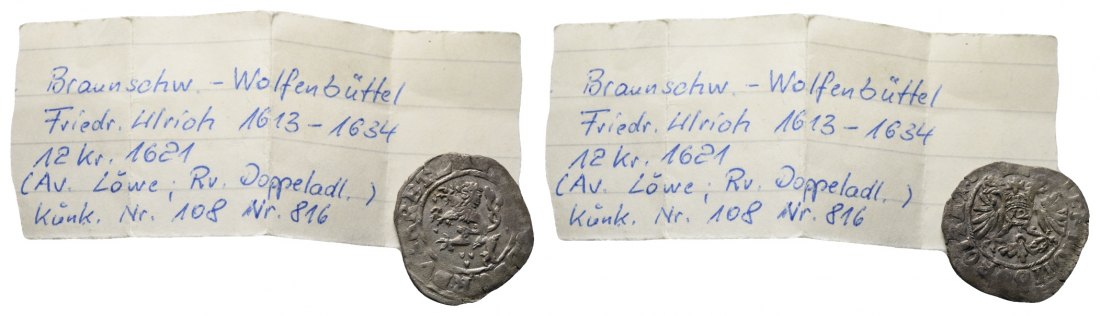 Braunschw. - Wolfenbüttel
Friedr. Ulrich 1613 - 1634
12 kr. 1621
(Av. Löwe ; Rv. Doppeladl.)
Künk. Nr. 108 Nr. 816
Braunschw. - Wolfenbüttel
Friedr. Ulrich 1613 - 1634
12 kr. 1621
(Av. Löwe ; Rv. Doppeladl.)
Künk. Nr. 108 Nr. 816